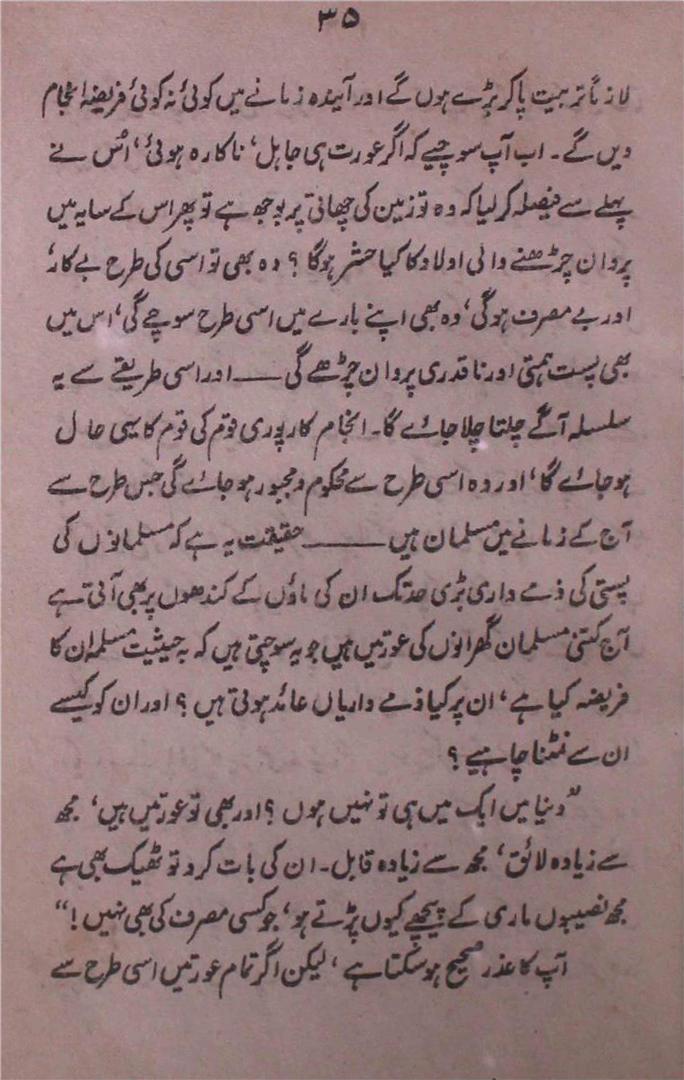 ۳۵
لازماً تربیت پا کر بڑے ہوں گے اور آیندہ زمانے میں کوئی نہ کوئی فریضہ انجام
دیں گے۔ اب آپ سوچیے کہ اگر عورت ہی جاہل، ناکارہ ہوئی، اُس نے
پہلے سے فیصلہ کر لیا کہ وہ تو زمین کی چھاتی پر بوجھ ہے تو پھر اس کے سایہ میں
پروان چڑھنے والی اولاد کا کیا حشر ہوگا ؟ وہ بھی تو اسی کی طرح بے کار
اور بے مصرف ہوگی، وہ بھی اپنے بارے میں اسی طرح سوچے گی، اس میں
بھی پست ہمتی اور ناقدری پروان چڑھے گی ـــــ اور اسی طریقے سے یہ
سلسلہ آگے چلتا چلا جائے گا۔ انجام کار پوری قوم کی قوم کا یہی حال
ہو جائے گا، اور وہ اسی طرح سے محکوم و مجبور ہو جائے گی جس طرح سے
آج کے زمانے میں مسلمان ہیں ـــــــ حقیقت یہ ہے کہ مسلمانوں کی
پستی کی ذمے داری بڑی حد تک ان کی ماؤں کے کندھوں پر بھی آتی ہے
آج کتنی مسلمان گھرانوں کی عورتیں ہیں جو یہ سوچتی ہیں کہ بہ حیثیت مسلمان ان کا
فریضہ کیا ہے، ان پر کیا ذمے داریاں عائد ہوتی ہیں ؟ اور ان کو کیسے
ان سے نمٹنا چاہیے ؟
”دنیا میں ایک میں ہی تو نہیں ہوں ؟ اور بھی تو عورتیں ہیں، مجھ
سے زیادہ لائق، مجھ سے زیادہ قابل۔ ان کی بات کرو تو ٹھیک بھی ہے
مجھ نصیبوں ماری کے پیچھے کیوں پڑتے ہو، جو کسی مصرف کی بھی نہیں !“
آپ کا عذر صحیح ہو سکتا ہے، لیکن اگر تمام عورتیں اسی طرح سے